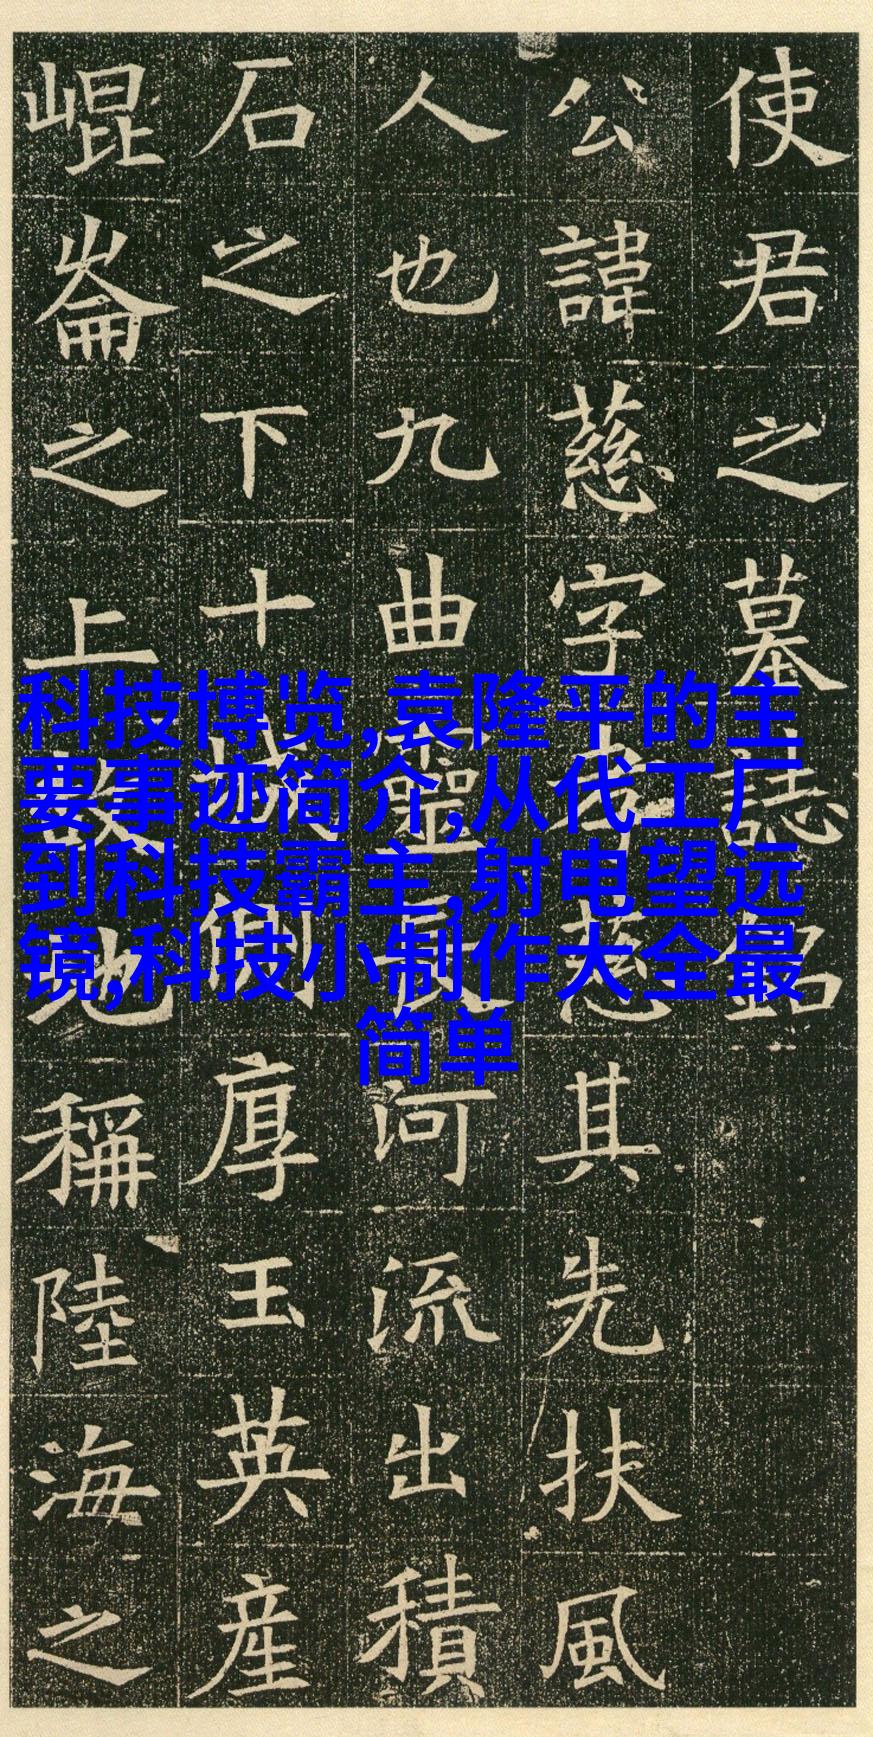 使君之墓誌銘
公諱慈字孝慈其先扶風
人也九曲靈長河流出積
石之下十城側厚玉英産
崐崙之上故地稱陸海之
科技博览,袁隆平的主
要事迹简介,从代工厂
到科技霸主,射电望远
镜,科技小制作大全最
简单